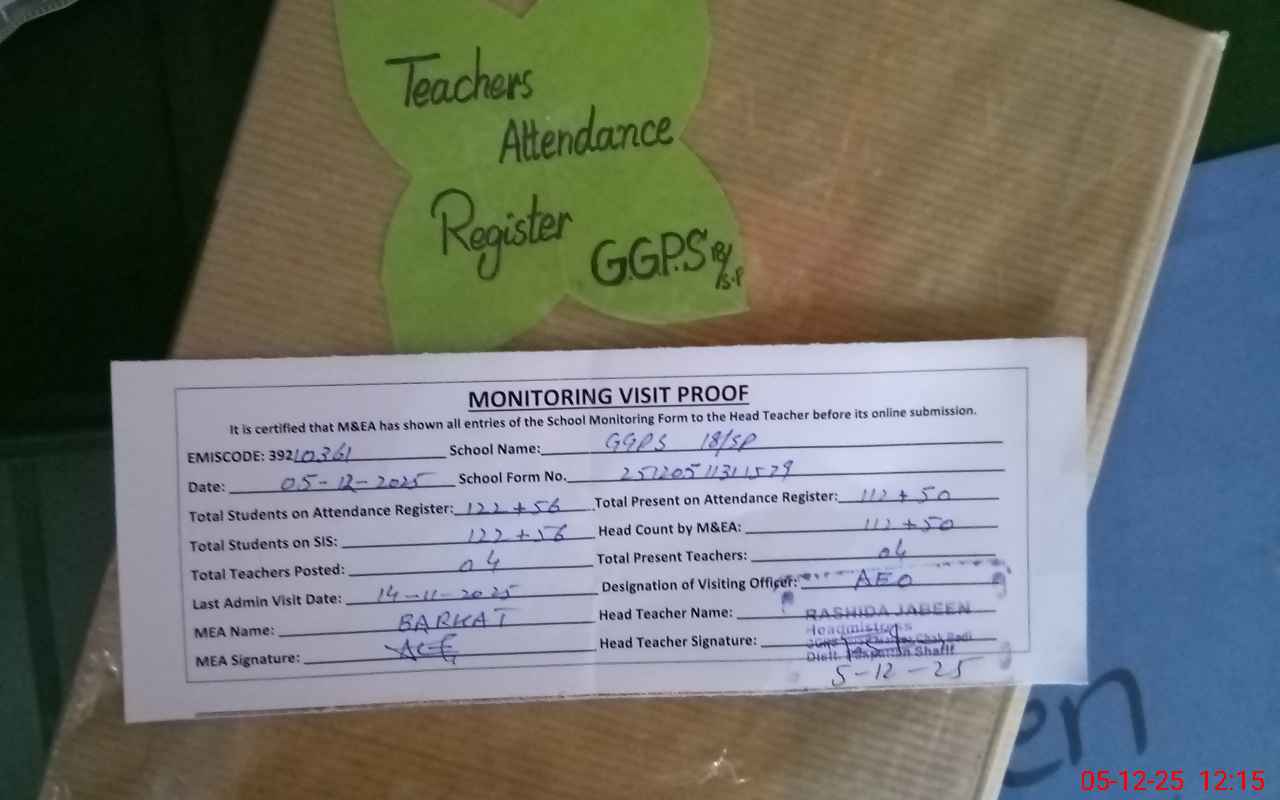 Teachers
Attendance
Register
G.G.P.S 18/S.P
MONITORING VISIT PROOF
It is certified that M&EA has shown all entries of the School Monitoring Form to the Head Teacher before its online submission.
EMISCODE: 39210361 School Name: GGPS 18/SP
Date: 05-12-2025 School Form No. 25120511311529
Total Students on Attendance Register: 122 + 56 Total Present on Attendance Register: 112 + 50
Total Students on SIS: 122 + 56 Head Count by M&EA: 112 + 50
Total Teachers Posted: 04 Total Present Teachers: 04
Last Admin Visit Date: 14-11-2025 Designation of Visiting Officer: AEO
MEA Name: BARKAT Head Teacher Name: RASHIDA JABEEN
Headmistress
MEA Signature: Head Teacher Signature:
Distt. Pakpattan Sharif
5-12-25
en
05-12-25 12:15